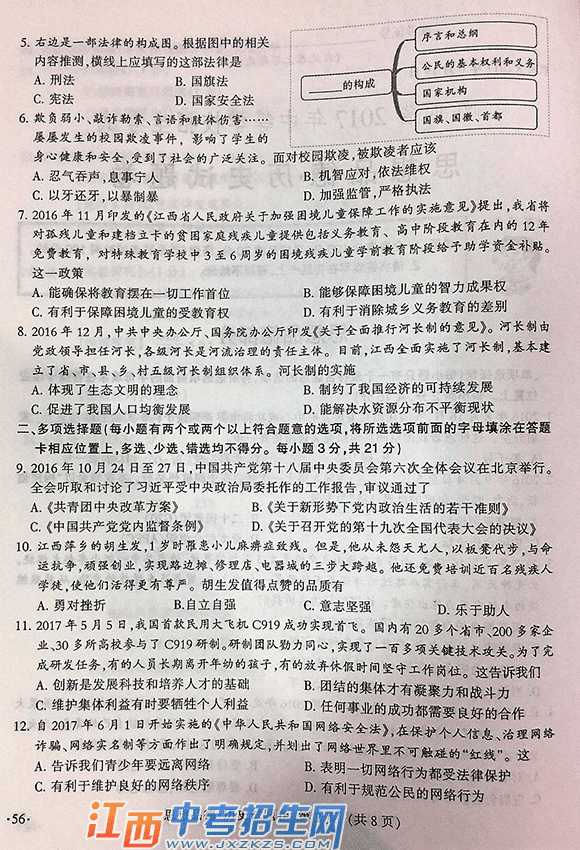 5. 右边是一部法律的构成图。根据图中的相关
内容推测,横线上应填写的这部法律是
A. 刑法 B. 国旗法
C. 宪法 D. 国家安全法
____的构成
序言和总纲
公民的基本权利和义务
国家机构
国旗、国徽、首都
6. 欺负弱小、敲诈勒索、言语和肢体伤害……
屡屡发生的校园欺凌事件,影响了学生的
身心健康和安全,受到了社会的广泛关注。面对校园欺凌,被欺凌者应该
A. 忍气吞声,息事宁人 B. 机智应对,依法维权
C. 以牙还牙,以暴制暴 D. 加强监管,严格执法
7. 2016 年 11 月印发的《江西省人民政府关于加强困境儿童保障工作的实施意见》提出,我省将
对孤残儿童和建档立卡的贫困家庭残疾儿童提供包括义务教育、高中阶段教育在内的 12 年
免费教育,对特殊教育学校中 3 至 6 周岁的困境残疾儿童学前教育阶段给予助学资金补贴。
这一政策
A. 能确保将教育摆在一切工作首位 B. 能够保障困境儿童的智力成果权
C. 有利于保障困境儿童的受教育权 D. 有利于消除城乡义务教育的差别
8. 2016 年 12 月,中共中央办公厅、国务院办公厅印发《关于全面推行河长制的意见》。河长制由
党政领导担任河长,各级河长是河流治理的责任主体。目前,江西全面实施了河长制,基本建
立了省、市、县、乡、村五级河长制组织体系。河长制的实施
A. 体现了生态文明的理念 B. 制约了我国经济的可持续发展
C. 促进了我国人口均衡发展 D. 能解决水资源分布不平衡现状
二、多项选择题(每小题有两个或两个以上符合题意的选项,将所选选项前面的字母填涂在答题
卡相应位置上,多选、少选、错选均不得分。每小题 3 分,共 21 分)
9. 2016 年 10 月 24 日至 27 日,中国共产党第十八届中央委员会第六次全体会议在北京举行。
全会听取和讨论了习近平受中央政治局委托作的工作报告,审议通过了
A.《共青团中央改革方案》 B.《关于新形势下党内政治生活的若干准则》
C.《中国共产党党内监督条例》 D.《关于召开党的第十九次全国代表大会的决议》
10. 江西萍乡的胡生发,1 岁时罹患小儿麻痹症致残。但是,他从未怨天尤人,以板凳代步,与命
运抗争,顽强创业,实现路边摊、修理店、电器城的三步大跨越。他还免费培训近百名残疾人
学徒,使他们活得更有尊严。胡生发值得点赞的品质有
A. 勇对挫折 B.自立自强 C. 意志坚强 D. 乐于助人
11. 2017 年 5 月 5 日,我国首款民用大飞机 C919 成功实现首飞。国内有 20 多个省市、200 多家企
业、30 多所高校参与了 C919 研制。研制团队勠力同心,实现了一百多项关键技术攻关。为了完
成研发任务,有的人员长期离开年幼的孩子,有的放弃休假时间坚守工作岗位。这告诉我们
A. 创新是发展科技和培养人才的基础 B. 团结的集体才有凝聚力和战斗力
C. 维护集体利益有时要牺牲个人利益 D. 任何事业的成功都需要良好的合作
12. 自 2017 年 6 月 1 日开始实施的《中华人民共和国网络安全法》,在保护个人信息、治理网络
诈骗、网络实名制等方面作出了明确规定,并划出了网络世界里不可触碰的“红线”。这
A. 告诉我们青少年要远离网络 B. 表明一切网络行为都受法律保护
C. 有利于维护良好的网络秩序 D. 有利于规范公民的网络行为
·56·
(共 8 页)
江西中考招生网